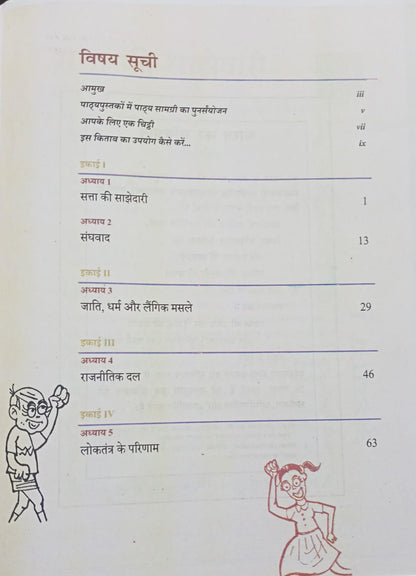 विषय सूची
आमुख iii
पाठ्यपुस्तकों में पाठ्य सामग्री का पुनर्संयोजन v
आपके लिए एक चिट्ठी vii
इस किताब का उपयोग कैसे करें... ix
इकाई I
अध्याय 1
सत्ता की साझेदारी 1
अध्याय 2
संघवाद 13
इकाई II
अध्याय 3
जाति, धर्म और लैंगिक मसले 29
इकाई III
अध्याय 4
राजनीतिक दल 46
इकाई IV
अध्याय 5
लोकतंत्र के परिणाम 63